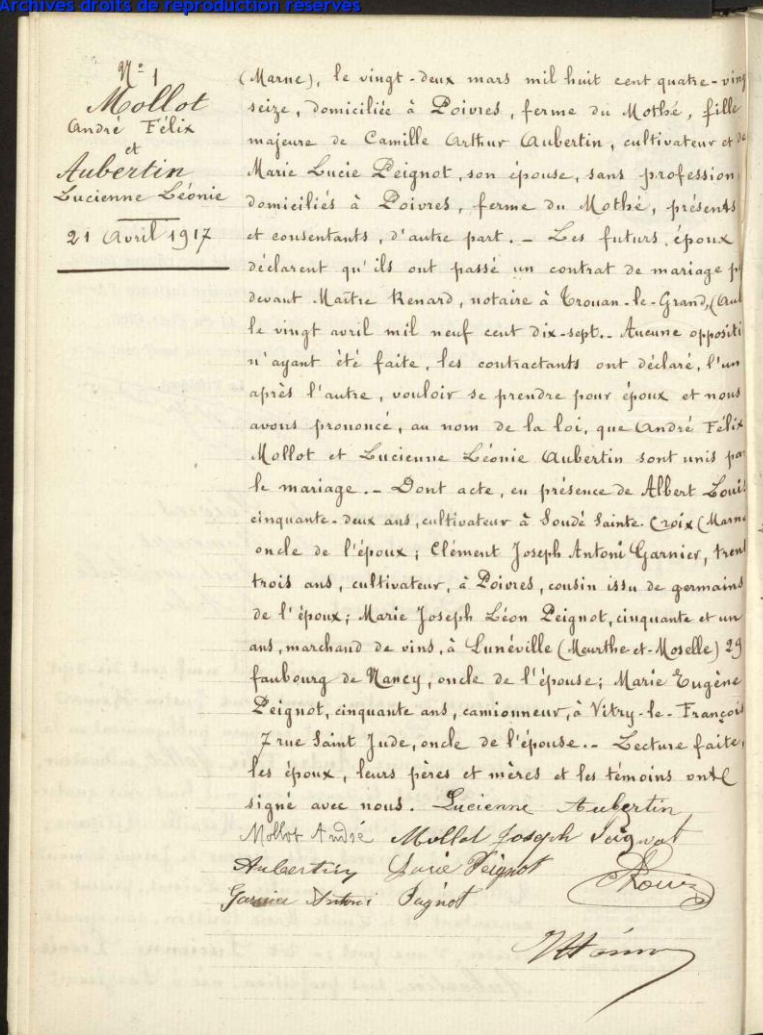 Archives droits de reproduction réservés
N° 1
Mollot
André Félix
et
Aubertin
Lucienne Léonie
21 Avril 1917
(Marne), le vingt-deux mars mil huit cent quatre-ving
seize, domiciliée à Poivres, ferme du Mothé, fille
majeure de Camille Arthur Aubertin, cultivateur et de
Marie Lucie Peignot, son épouse, sans profession
domiciliés à Poivres, ferme du Mothé, présents
et consentants, d'autre part. - Les futurs époux
déclarent qu'ils ont passé un contrat de mariage p
devant Maître Renard, notaire à Trouan-le-Grand, (Aub
le vingt avril mil neuf cent dix-sept. - Aucune oppositi
n'ayant été faite, les contractants ont déclaré, l'un
après l'autre, vouloir se prendre pour époux et nous
avons prononcé, au nom de la loi, que André Félix
Mollot et Lucienne Léonie Aubertin sont unis pa
le mariage. - Dont acte, en présence de Albert Louis
cinquante-deux ans, cultivateur à Soudé Sainte Croix (Marne
oncle de l'époux; Clément Joseph Antoni Garnier, trent
trois ans, cultivateur, à Poivres, cousin issu de germains
de l'époux; Marie Joseph Léon Peignot, cinquante et un
ans, marchand de vins, à Lunéville (Meurthe-et-Moselle) 29
faubourg de Nancy, oncle de l'épouse; Marie Eugène
Peignot, cinquante ans, camionneur, à Vitry-le-François
7 rue Saint Jude, oncle de l'épouse. - Lecture faite,
les époux, leurs pères et mères et les témoins ont
signé avec nous. Lucienne Aubertin
Mollot André Mollot Joseph Peignot
Aubertin Lucie Peignot
Garnier Antoni Peignot